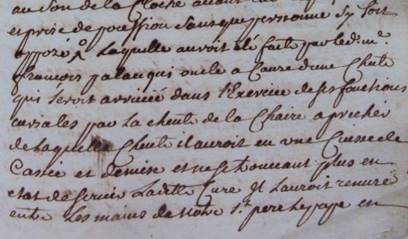 au son de la Cloche avant
et prise de possession sans que personne sy soit
oppozé laquelle auroit été faite par led. mᵉ
francois palauqui oncle a Cause dune Chute
qui seroit arrivée dans l'Exercice de ses fonctions
curiales par la cheute de la Chaire a precher
de laquelle Chute il auroit eu une Cuisse
Cassée et demise et ne se trouvant plus en
etat de servir Ladite Cure Jl Lauroit remise
entre les mains de notre sᵗ pere le pape en